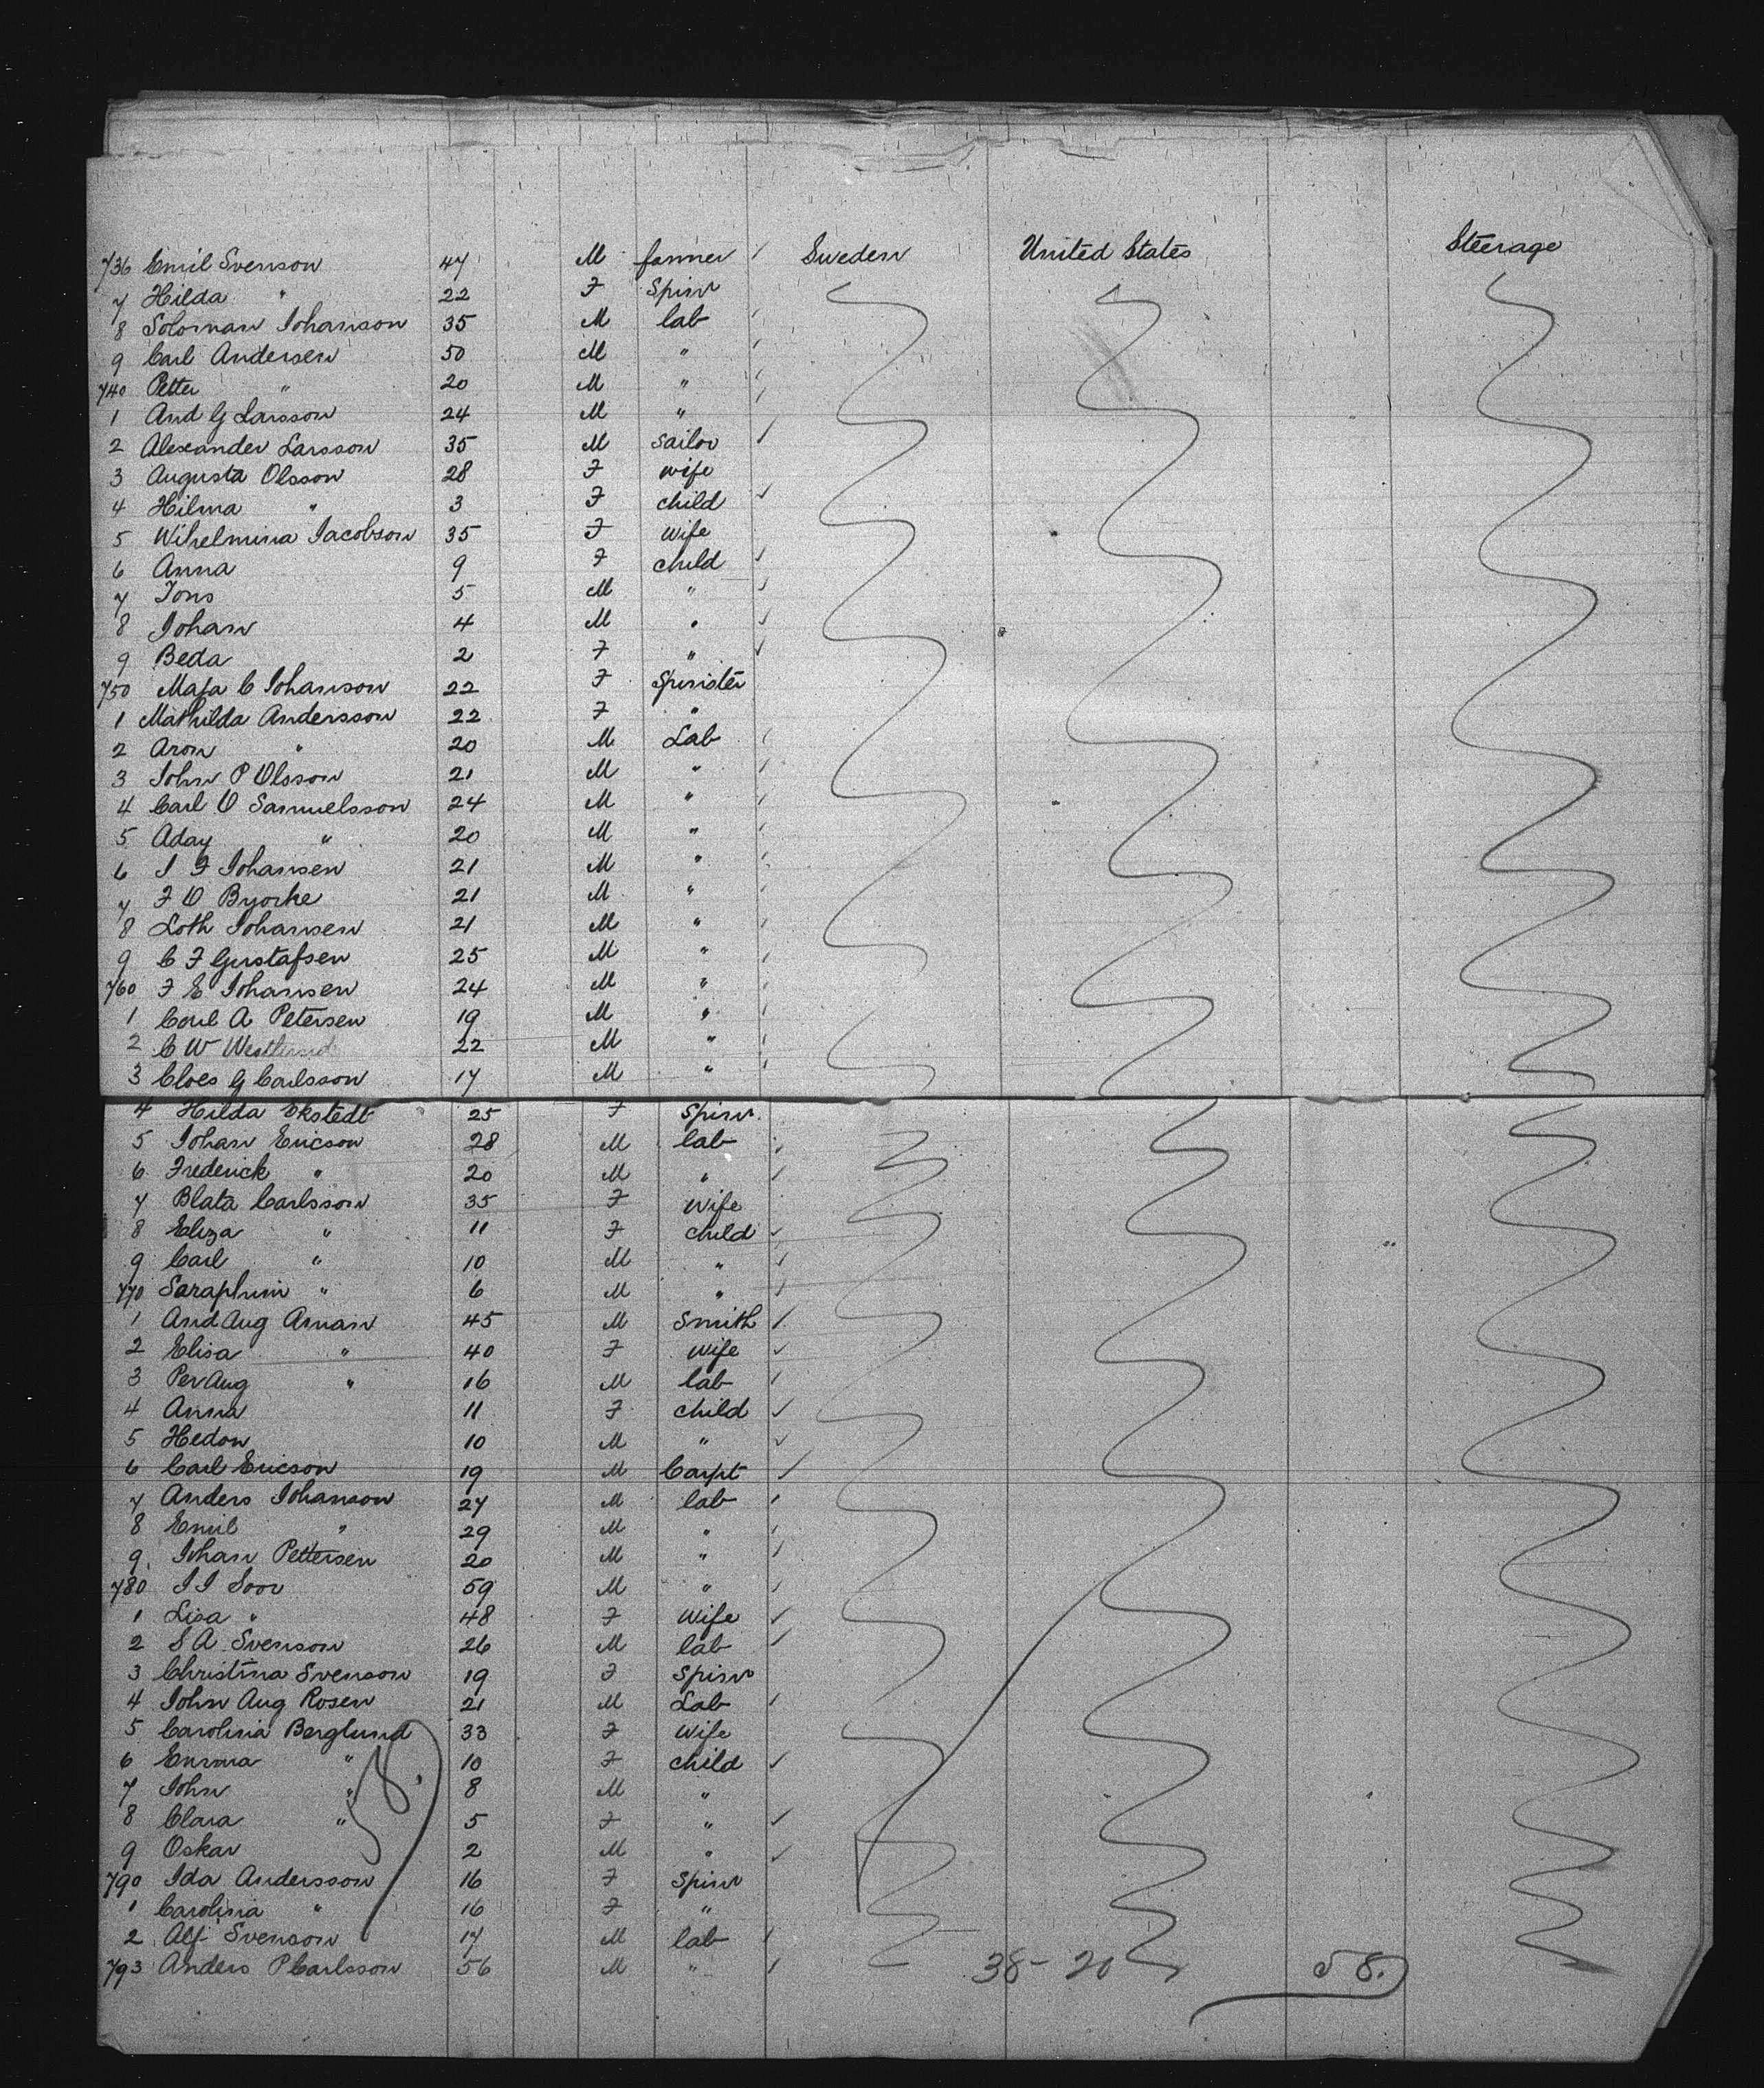 736 Emil Svenson 47 M farmer Sweden United States Steerage
7 Hilda " 22 F Spin
8 Soloman Johanson 35 M lab
9 Carl Andersen 50 M "
740 Petter " 20 M "
1 And G Larsson 24 M "
2 Alexander Larsson 35 M Sailor
3 Augusta Olsson 28 F wife
4 Hilma " 3 F child
5 Wihelmina Jacobson 35 F Wife
6 Anna 9 F child
7 Jons 5 M "
8 Johan 4 M "
9 Beda 2 F "
750 Maja C Johanson 22 F Spinster
1 Mathilda Andersson 22 F "
2 Aron " 20 M Lab
3 John P Olsson 21 M "
4 Carl O Samuelsson 24 M "
5 Aday " 20 M "
6 J F Johansen 21 M "
7 F O Byorke 21 M "
8 Loth Johansen 21 M "
9 C F Gustafsen 25 M "
760 F E Johansen 24 M "
1 Carl A Petersen 19 M "
2 C W Westlund 22 M "
3 Cloes G Carlsson 17 M "
4 Hilda Ekstedt 25 F Spin
5 Johan Ericson 28 M lab
6 Frederick " 20 M "
7 Blata Carlsson 35 F Wife
8 Eliza " 11 F child
9 Carl " 10 M "
770 Saraphim " 6 M "
1 And Aug Aman 45 M Smith
2 Elisa " 40 F Wife
3 Per Aug " 16 M lab
4 Anna 11 F child
5 Hedon 10 M "
6 Carl Ericson 19 M Carpt
7 Anders Johanson 27 M lab
8 Emil " 29 M "
9 Johan Pettersen 20 M "
780 J J Soor 59 M "
1 Lisa " 48 F Wife
2 S A Svenson 26 M lab
3 Christina Svenson 19 F Spin
4 John Aug Rosen 21 M Lab
5 Carolina Berglund 33 F Wife
6 Emma " 10 F child
7 John " 8 M "
8 Clara " 5 F "
9 Oskar 2 M "
790 Ida Andersson 16 F Spin
1 Carolina " 16 F "
2 Alf Svenson 17 M lab
793 Anders P Carlsson 56 M "
38-20 58.